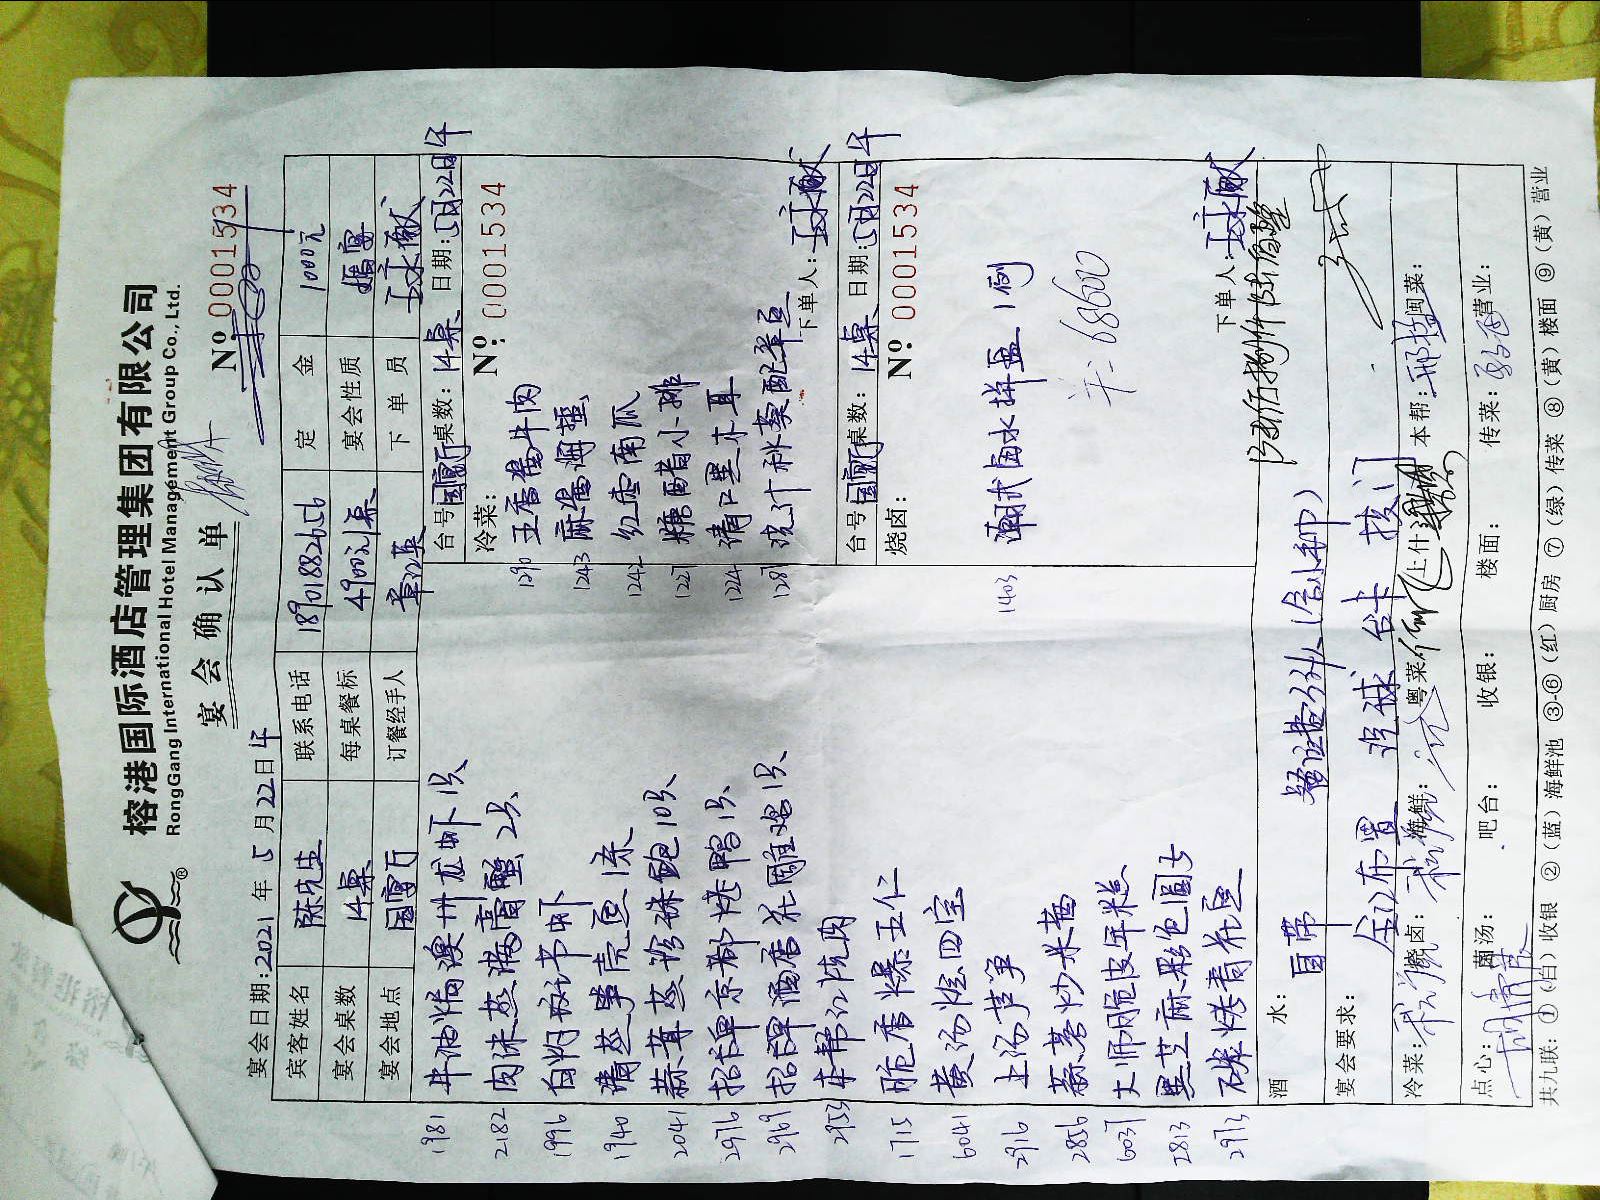 榕港国际酒店管理集团有限公司
RongGang International Hotel Management Group Co., Ltd.
宴会确认单
宴会日期:2021年5月22日午
Nº 0001534
宾客姓名 陈先生 联系电话 18901882656 定金 1000元
宴会桌数 14桌 每桌餐标 4900元/桌 宴会性质 婚宴
宴会地点 国宴厅 订餐经手人 章红英 下单员 王永敏
1981 牛油焗澳洲龙虾1只
2182 肉沫蒸满膏蟹2只
1996 白灼基围虾
1940 清蒸笋壳鱼1条
2041 蒜茸蒸珍珠鲍10只
2976 招牌京都烤鸭1只
2969 招牌酒香花雕鸡1只
2953 本帮红烧肉
1715 脆香爆虾仁
6041 黄汤烩四宝
2916 上汤芦笋
2856 蒜蓉炒米苋
6037 大师脆皮年糕
2813 黑芝麻彩色圆子
2973 碳烤青花鱼
台号:国宴厅 桌数:14桌 日期:5月22日午
冷菜:
Nº: 0001534
1290 五香酱牛肉
1243 麻酱海蜇
1242 红枣南瓜
1227 糖醋小排
1224 清口黑木耳
1281 烧汁秋葵配毕豆
下单人:王永敏
台号:国宴厅 桌数:14桌 日期:5月22日午
烧卤:
Nº 0001534
1403 潮式卤水拼盘1例
68600
下单人:王永敏
酒水: 自带 餐位费(含小柿)
宴会要求: 布置 台卡 拱门
冷菜: 烧卤: 海鲜: 粤菜: 上什: 本帮: 闽菜:
点心: 南汤: 吧台: 收银: 楼面: 传菜: 营业:
共九联:①(白)收银 ②(蓝)海鲜池 ③-⑥(红)厨房 ⑦(绿)传菜 ⑧(黄)楼面 ⑨(黄)营业